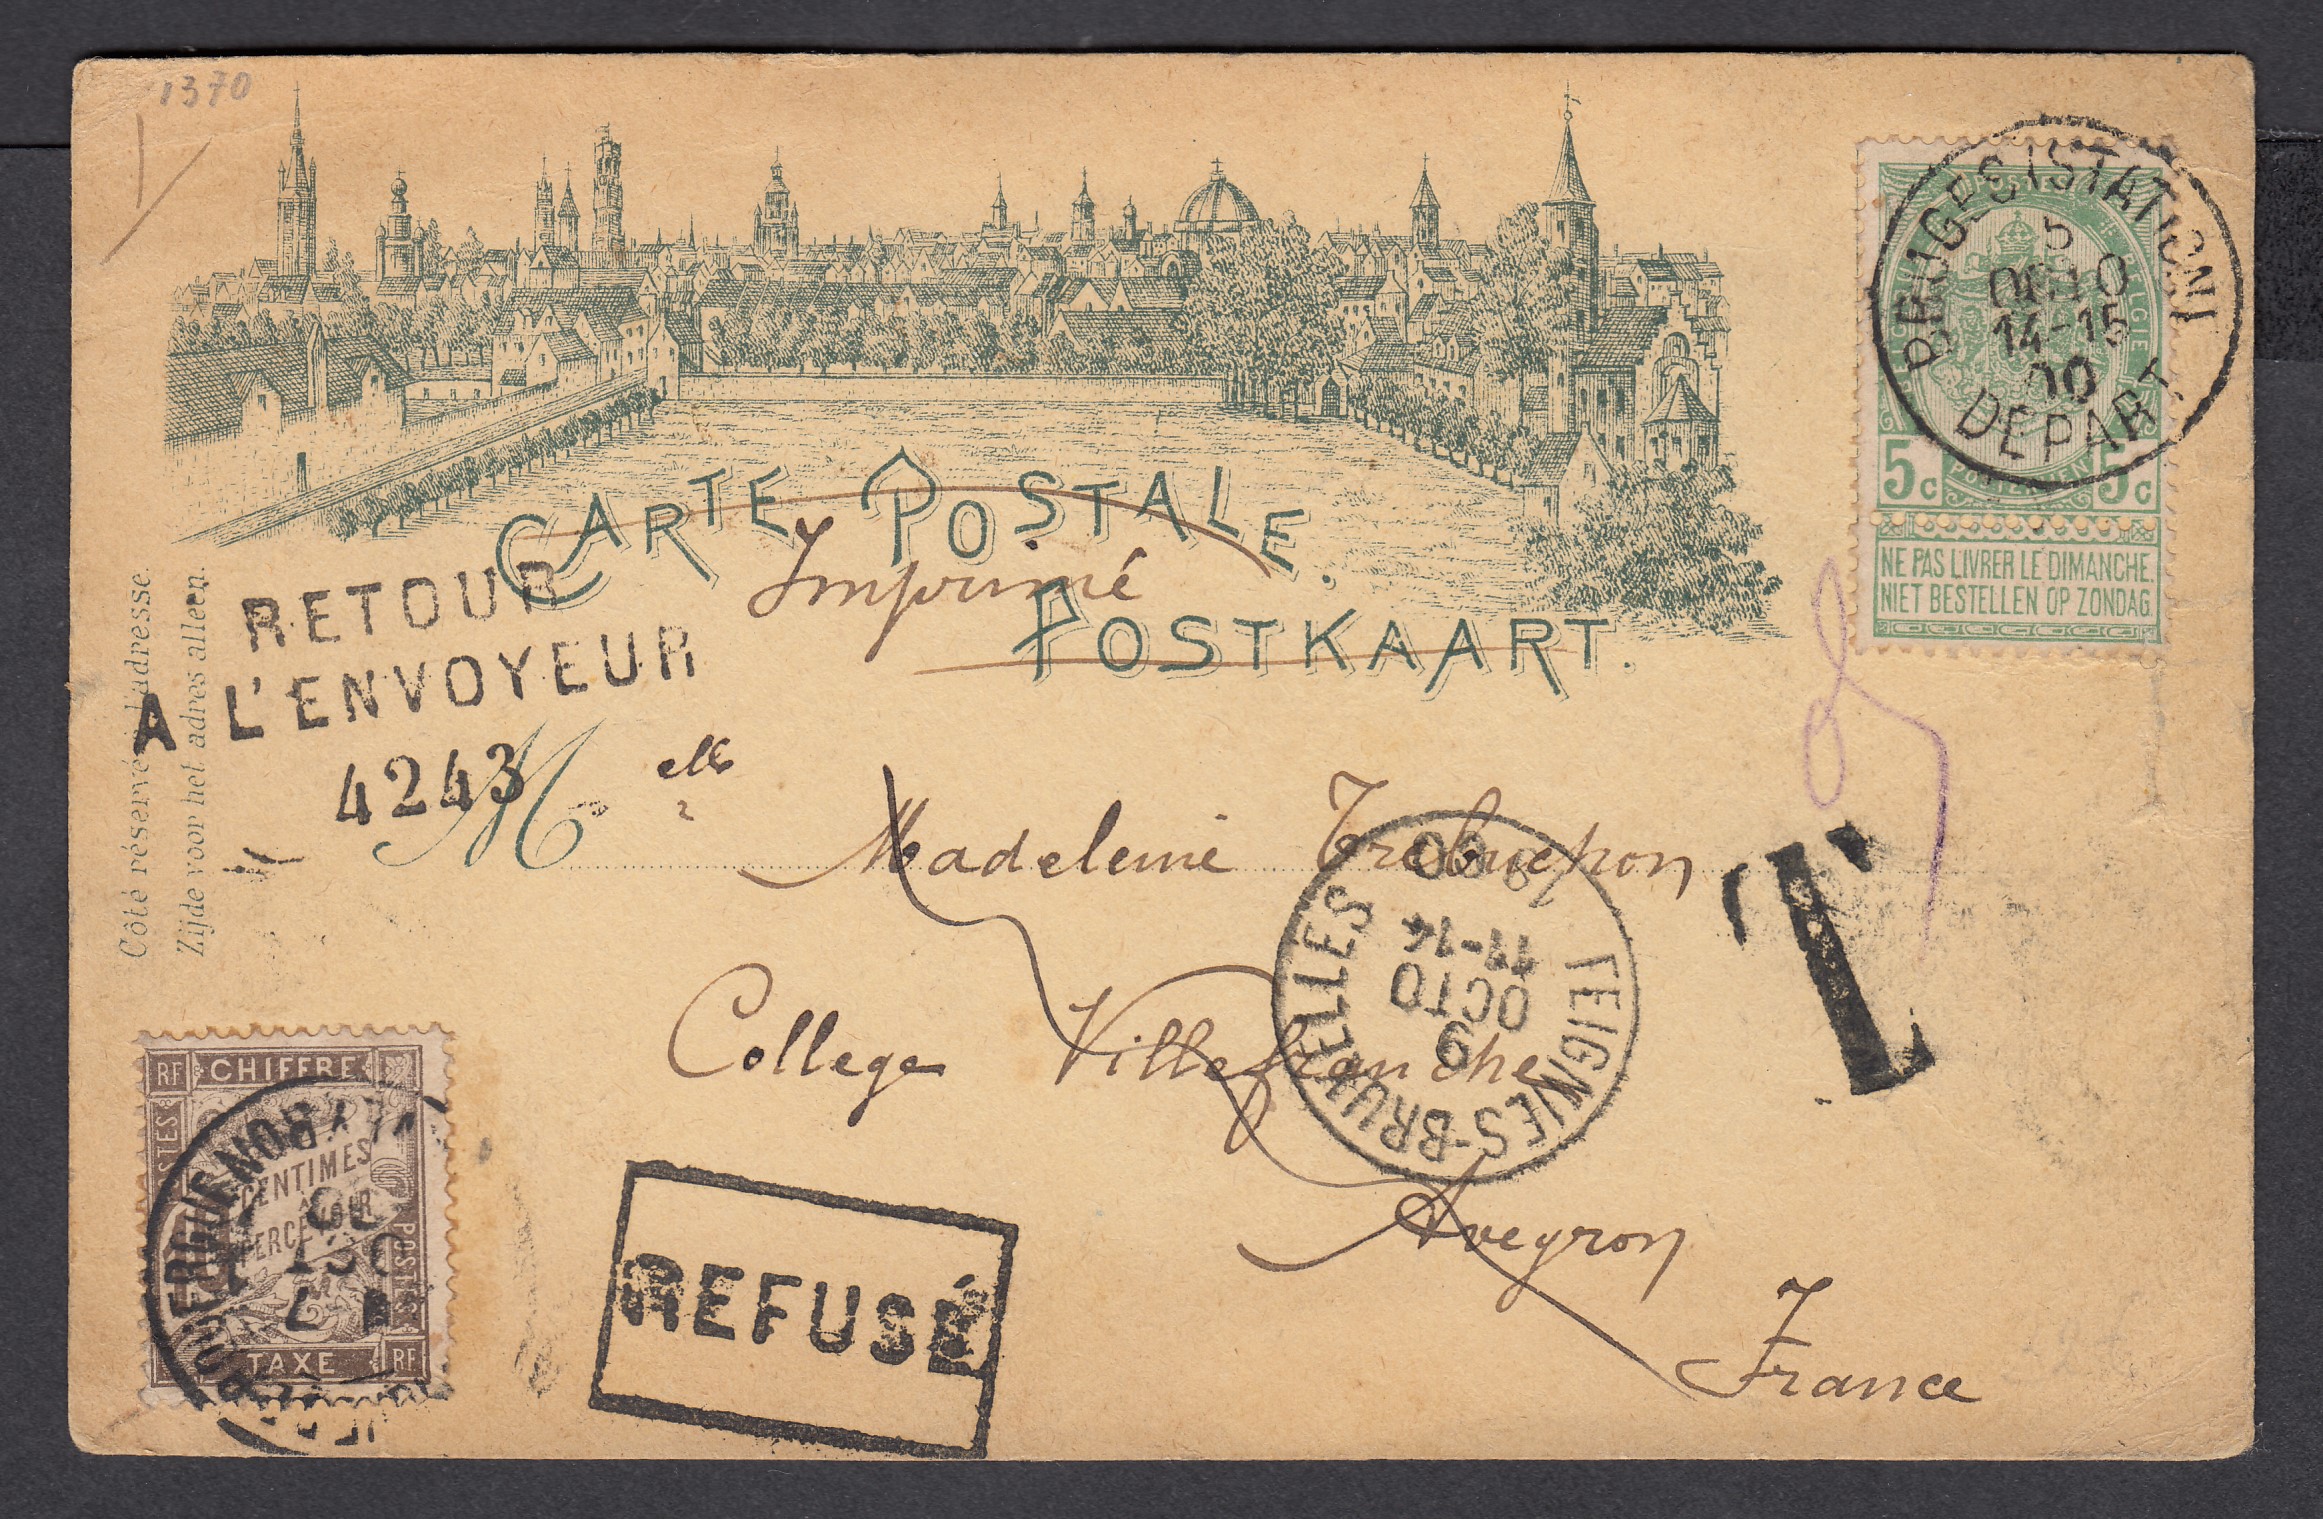 1370
CARTE POSTALE.
Imprimé
POSTKAART.
BRUGES (STATION)
5
OCTO
14-15
00
DEPART
5c 5c
NE PAS LIVRER LE DIMANCHE.
NIET BESTELLEN OP ZONDAG.
Côté réservé à l'adresse.
Zijde voor het adres alleen.
RETOUR
A L'ENVOYEUR
4243
M elle
Madeleine
College Villefranche
Aveyron
France
T
00
11-14
OCTO
9
-BRUXELLES
RF CHIFFRE
CENTIMES
À
PERCEVOIR
POSTES
TAXE RF
REFUSÉ